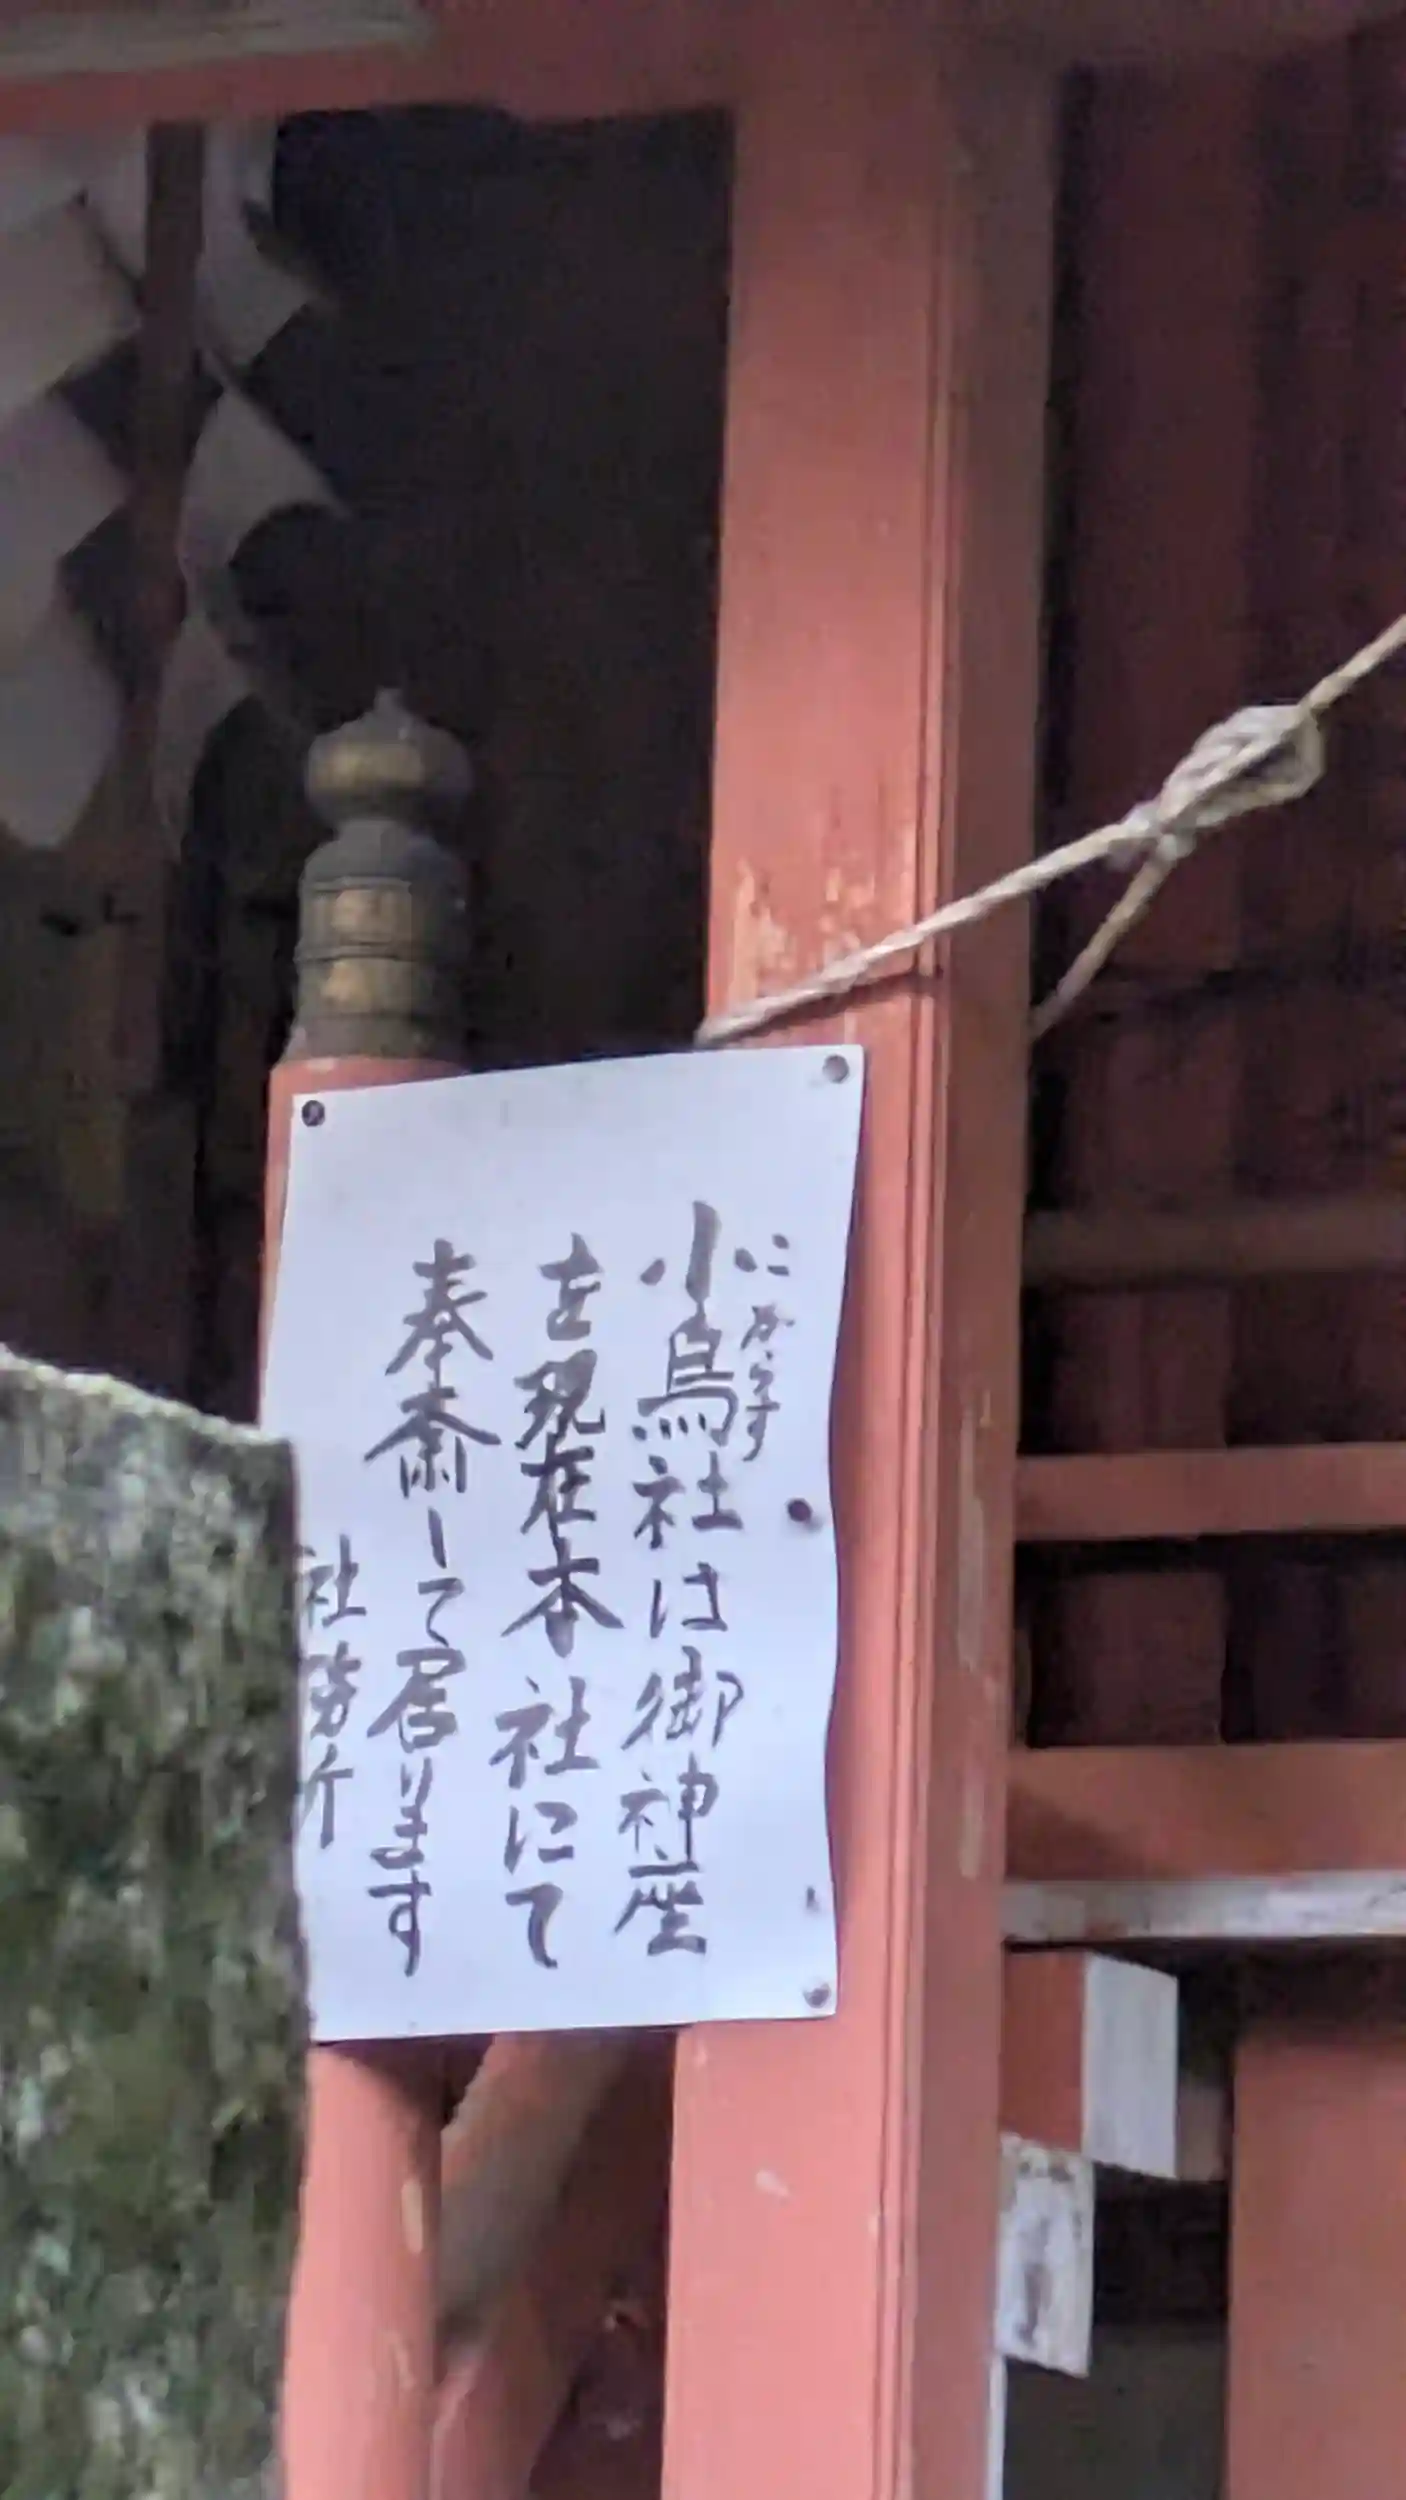 こがらす
小烏社は御神座
を現在本社にて
奉斎して居ります
社務所